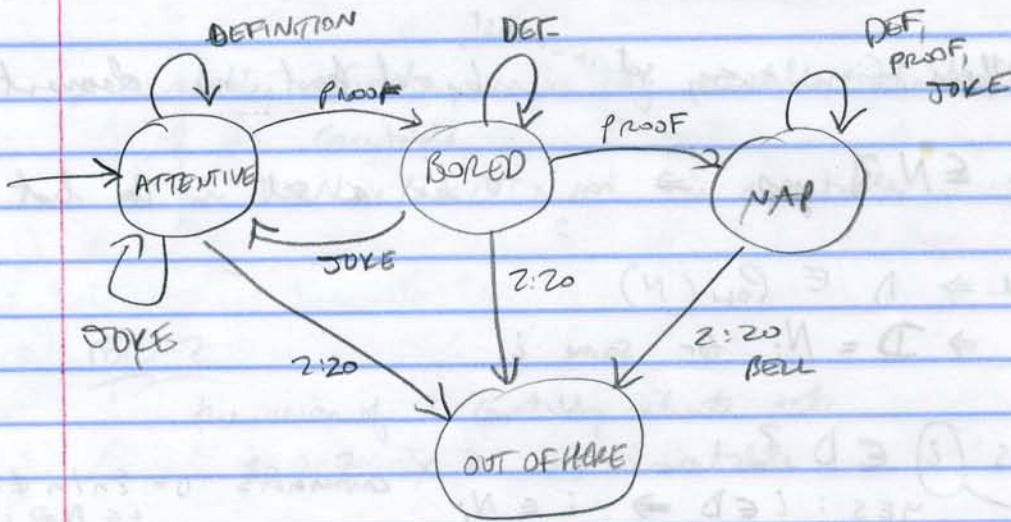 DEFINITION
DEF
DEF,
PROOF,
JOKE
PROOF
PROOF
ATTENTIVE
BORED
NAP
JOKE
JOKE
2:20
2:20
2:20
BELL
OUT OF HERE